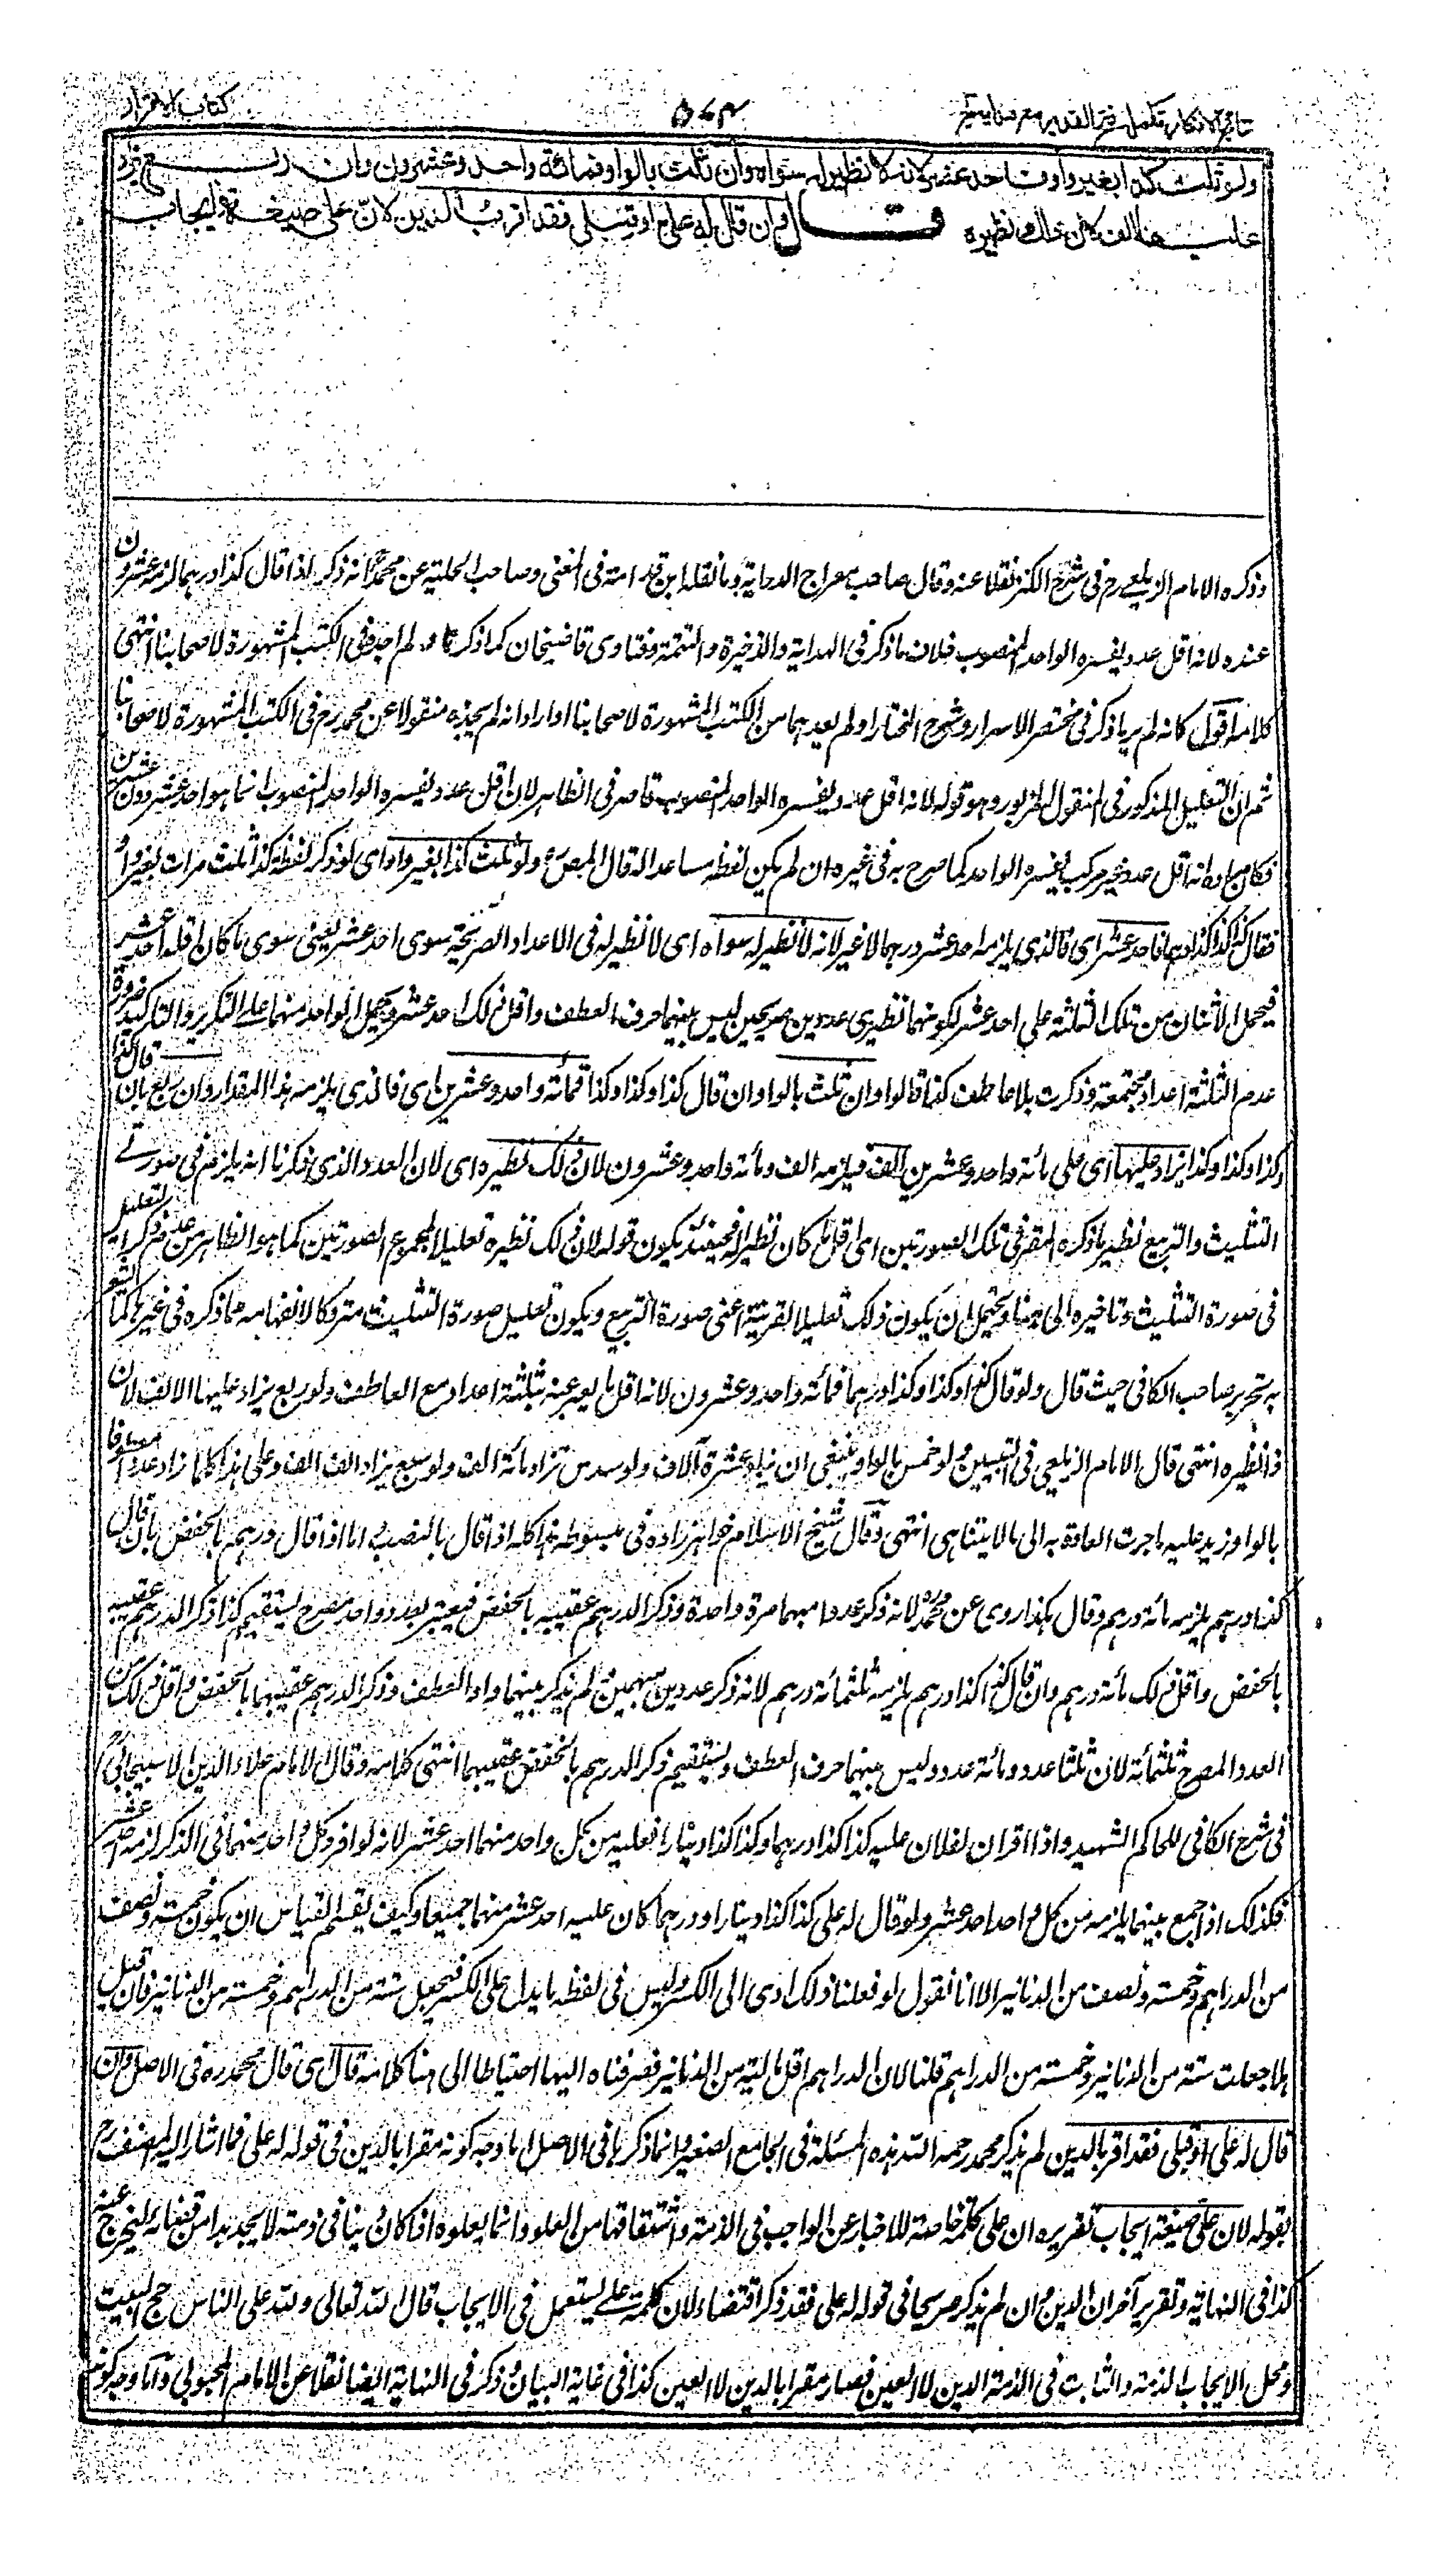 نتائج الافكار تكملہ فتح القدير مع هدايہ كتاب الاقرار
ولو ثلث كذا بغير واو فاحد عشر لانه لا نظير له سواه وان ثلث بالواو فمائة واحد وعشرون وان ربع يزاد
عليها الف لان ذلك نظيره قال وان قال له علي او قبلي فقد اقر بالدين لان علي صيغة ايجاب
وذكره الامام الزيلعي رح في شرح الكنز نقلا عنه وقال صاحب معراج الدراية وما نقله ابن قدامة في المغني وصاحب الحلية عن محمد انه ذكر اذا قال كذا درهما لزمه عشرون
عنده لانه اقل عدد يفسره الواحد المنصوب فخلاف ما ذكر في الهداية والذخيرة والتتمة وفتاوى قاضيخان كما ذكرنا ولم اجده في الكتب المشهورة لاصحابنا انتهى
كلامه اقول كانه لم ير ما ذكر في مختصر الاسرار وشرح المختار او لم يعدهما من الكتب المشهورة لاصحابنا او اراد انه لم يجده منقولا عن محمد رح في الكتب المشهورة لاصحابنا
ثم ان التعليل المذكور في المنقول المزبور وهو قوله لانه اقل عدد يفسره الواحد المنصوب قاصر في الظاهر لان اقل عدد يفسره الواحد المنصوب انما هو احد عشر دون عشرين
فكان مراده انه اقل عدد غير مركب يفسره الواحد كما صرح به في غيره ان لم يكن لفظه مساعدا له قال المص رح ولو ثلث كذا بغير واو اى لو ذكر لفظة كذا ثلث مرات بغير واو
فقال كذا كذا كذا درهما فاحد عشر اى فالذى يلزمه احد عشر درهما لا غير لانه لا نظير له سواه اى لا نظير له في الاعداد الصريحة سوى احد عشر يعنى سوى ما كان اقله احد عشر
فيحمل الاثنان من تلك الثلثة على احد عشر لكونهما نظيرى عددين صريحين ليس بينهما حرف العطف واقل ذلك احد عشر ويحمل الواحد منها على التكرير والتاكيد ضرورة
عدم الثلثة اعداد مجتمعة وذكرت بلا عاطف كذا قالوا وان ثلث بالواو وان قال كذا وكذا وكذا فمائة واحد وعشرين اى فالذى يلزمه هذا المقدار وان ربع بان قال كذا
وكذا وكذا وكذا يزاد عليها اى على مائة واحد وعشرين الف فيلزمه الف ومائة واحد وعشرون لان ذلك نظيره اى لان العدد الذى ذكرنا انه يلزم في صورتي
التثليث والتربيع نظير ما ذكره المقر في تلك الصورتين اى اقل ما كان نظيرا له فحينئذ يكون قوله لان ذلك نظيره تعليلا لمجموع الصورتين كما هو الظاهر من عدم ذكر التعليل
في صورة التثليث وتاخيره الى هنا ويحتمل ان يكون ذلك تعليلا لقريبة اعنى صورة التربيع ويكون تعليل صورة التثليث متروكا لانفهامه مما ذكره في غيرها كما اشعر
به تحرير صاحب الكافي حيث قال ولو قال كذا وكذا وكذا درهما فمائة واحد وعشرون لانه اقل ما يعبر عنه بثلثة اعداد مع العاطف ولو ربع يزاد عليها الالف لان
ذا نظيره انتهى قال الامام الزيلعي في التبيين ولو خمس بالواو ينبغى ان يزيد عشرة آلاف ولو سدس تزاد مائة الف ولو سبع يزاد الف الف وعلى هذا كلما زاد عددا معطوفا
بالواو زيد عليه ما جرت العادة به الى ما لا يتناهى انتهى وقال شيخ الاسلام خواهر زاده في مبسوطه هذا كله اذا قال بالنصب اما اذا قال درهم بالخفض بان قال
كذا درهم يلزمه مائة درهم وقال هكذا روى عن محمد لانه ذكر عددا مبهما مرة واحدة وذكر الدرهم عقيبه بالخفض فيعتبر بعدد واحد مصرح يستقيم كذا ذكر الدرهم عقيبه
بالخفض واقل ذلك مائة درهم وان قال كذا كذا درهم يلزمه ثلثمائة درهم لانه ذكر عددين مبهمين لم يذكر بينهما واو العطف وذكر الدرهم عقيبهما بالخفض واقل ذلك من
العدد المصرح ثلثمائة لان ثلثا عدد ومائة عدد وليس بينهما حرف العطف ويستقيم ذكر الدرهم بالخفض عقيبهما انتهى كلامه وقال الامام علاء الدين الاسبيجابي رح
في شرح الكافي للحاكم الشهيد واذا اقر ان لفلان عليه كذا كذا درهما وكذا كذا دينارا فعليه من كل واحد منهما احد عشر لانه لو افرد كل واحد منهما في الذكر لزمه احد عشر
فكذلك اذا جمع بينهما يلزمه من كل واحد احد عشر ولو قال له على كذا كذا دينارا او درهما كان عليه احد عشر منهما جميعا وكيف يقسم القياس ان يكون خمسة ونصف
من الدراهم وخمسة ونصف من الدنانير الا انا نقول لو فعلنا ذلك ادى الى الكسر وليس في لفظه ما يدل على الكسر فيجعل ستة من الدراهم وخمسة من الدنانير فان قيل
هلا جعلت ستة من الدنانير وخمسة من الدراهم قلنا لان الدراهم اقل مالية من الدنانير فصرفناه اليها احتياطا الى هنا كلامه قال اى قال محمد ره في الاصل وان
قال له على او قبلى فقد اقر بالدين لم يذكر محمد رحمه الله هذه المسئلة في الجامع الصغير وانما ذكرها في الاصل اما وجه كونه مقرا بالدين في قوله له على فما اشار اليه المصنف رح
بقوله لان على صيغة ايجاب تقريره ان على كلمة خاصة للاخبار عن الواجب في الذمة واشتقاقها من العلو وانما يعلوه اذا كان دينا في ذمته لا يجد بدا من قضائه ليخرج عنه
كذا في النهاية وتقرير آخر ان الدين وان لم يذكر صريحا في قوله له على فقد ذكر اقتضاء لان كلمة على يستعمل في الايجاب قال الله تعالى ولله على الناس حج البيت
ومحل الايجاب الذمة والثابت في الذمة الدين لا العين فصار مقرا بالدين لا العين كذا في غاية البيان وذكر في النهاية ايضا نقلا عن الامام المحبوبي واما وجه كونه